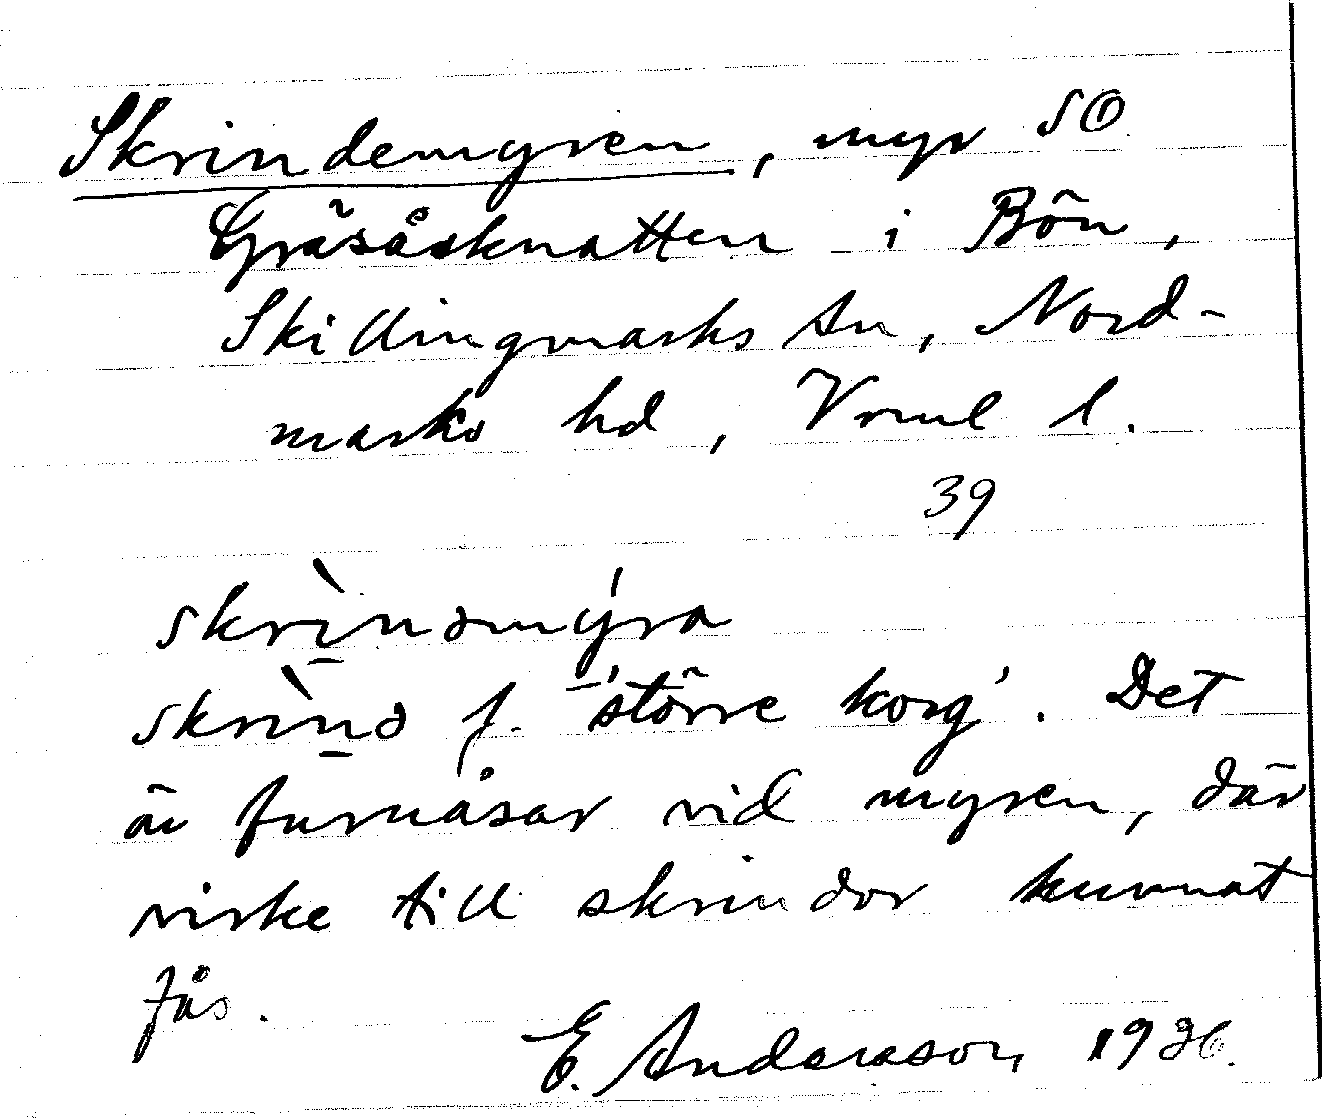 Skrindemyren, myr SO
Gräsåsknatten i Bön,
Skillingmarks sn, Nord-
marks hd, Vrml l.
39
skrìnəmýra
skrìnə f. 'större korg'. Det
är furuåsar vid myren, där
virke till skrindor kunnat
fås.
E. Andersson 1936.